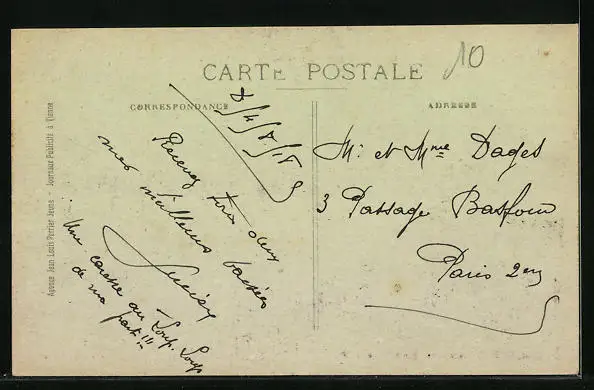 10
CARTE POSTALE
CORRESPONDANCE
ADRESSE
Recevez tous deux
mes meilleurs baisers
Une caresse au Loup-Loup
de ma part!!!
Mr. et Mme Dages
3 Passage Basfour
Paris 2em
Agence Jean Louis Perrier Jeune - Journaux Publicité à Vienne